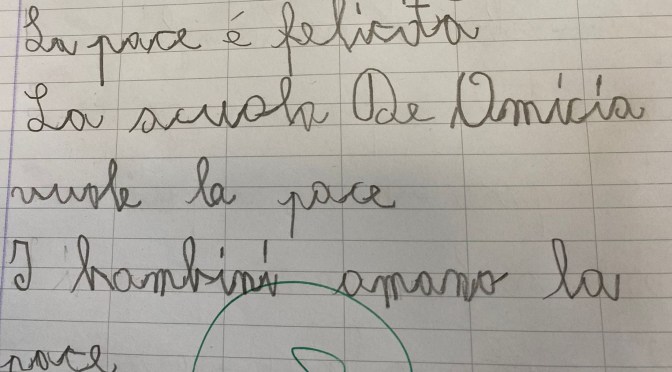 La pace é felicità
La scuola De Amicis
vuole la pace
I bambini amano la
pace.